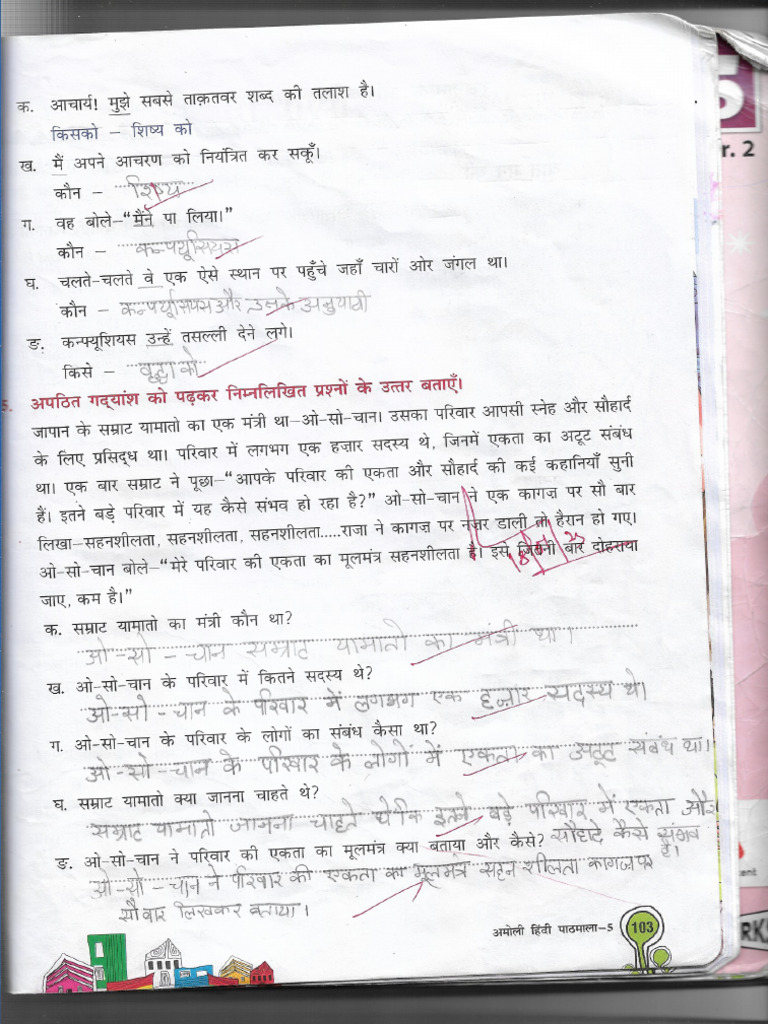 क. आचार्य! मुझे सबसे ताक़तवर शब्द की तलाश है।
किसको – शिष्य को
ख. मैं अपने आचरण को नियंत्रित कर सकूँ।
कौन – शिष्य
ग. वह बोले–“मैंने पा लिया।”
कौन – कन्फ्यूसियस
घ. चलते-चलते वे एक ऐसे स्थान पर पहुँचे जहाँ चारों ओर जंगल था।
कौन – कन्फ्यूसियस और उनके अनुयायी
ङ. कन्फ्यूशियस उन्हें तसल्ली देने लगे।
किसे – वृद्धा को
5. अपठित गद्यांश को पढ़कर निम्नलिखित प्रश्नों के उत्तर बताएँ।
जापान के सम्राट यामातो का एक मंत्री था–ओ-सो-चान। उसका परिवार आपसी स्नेह और सौहार्द
के लिए प्रसिद्ध था। परिवार में लगभग एक हज़ार सदस्य थे, जिनमें एकता का अटूट संबंध
था। एक बार सम्राट ने पूछा–“आपके परिवार की एकता और सौहार्द की कई कहानियाँ सुनी
हैं। इतने बड़े परिवार में यह कैसे संभव हो रहा है?” ओ-सो-चान ने एक कागज़ पर सौ बार
लिखा–सहनशीलता, सहनशीलता, सहनशीलता.....राजा ने कागज़ पर नज़र डाली तो हैरान हो गए।
ओ-सो-चान बोले–“मेरे परिवार की एकता का मूलमंत्र सहनशीलता है। इसे जितनी बार दोहराया
जाए, कम है।”
क. सम्राट यामातो का मंत्री कौन था?
ओ-सो-चान सम्राट यामातो का मंत्री था।
ख. ओ-सो-चान के परिवार में कितने सदस्य थे?
ओ-सो-चान के परिवार में लगभग एक हज़ार सदस्य थे।
ग. ओ-सो-चान के परिवार के लोगों का संबंध कैसा था?
ओ-सो-चान के परिवार के लोगों में एकता का अटूट संबंध था।
घ. सम्राट यामातो क्या जानना चाहते थे?
सम्राट यामातो जानना चाहते थे कि इतने बड़े परिवार में एकता और
सौहार्द कैसे संभव है।
ङ. ओ-सो-चान ने परिवार की एकता का मूलमंत्र क्या बताया और कैसे?
ओ-सो-चान ने परिवार की एकता का मूलमंत्र सहनशीलता कागज पर
सौ बार लिखकर बताया।
अमोली हिंदी पाठमाला–5 103
r. 2